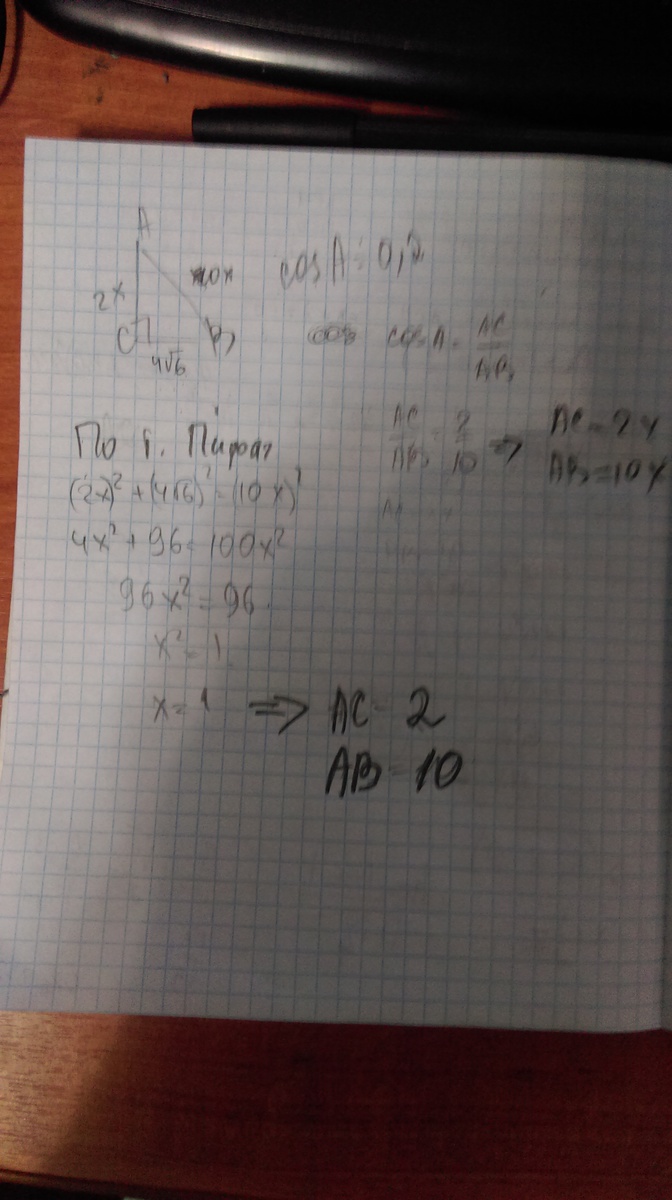 A
2x 10x cos A = 0,2
C B cos A = AC/AB
4√6
AC/AB = 2/10 => AC = 2x
AB = 10x
По т. Пифаг
(2x)² + (4√6)² = (10x)²
4x² + 96 = 100x²
96x² = 96
x² = 1
x = 1 => AC = 2
AB = 10